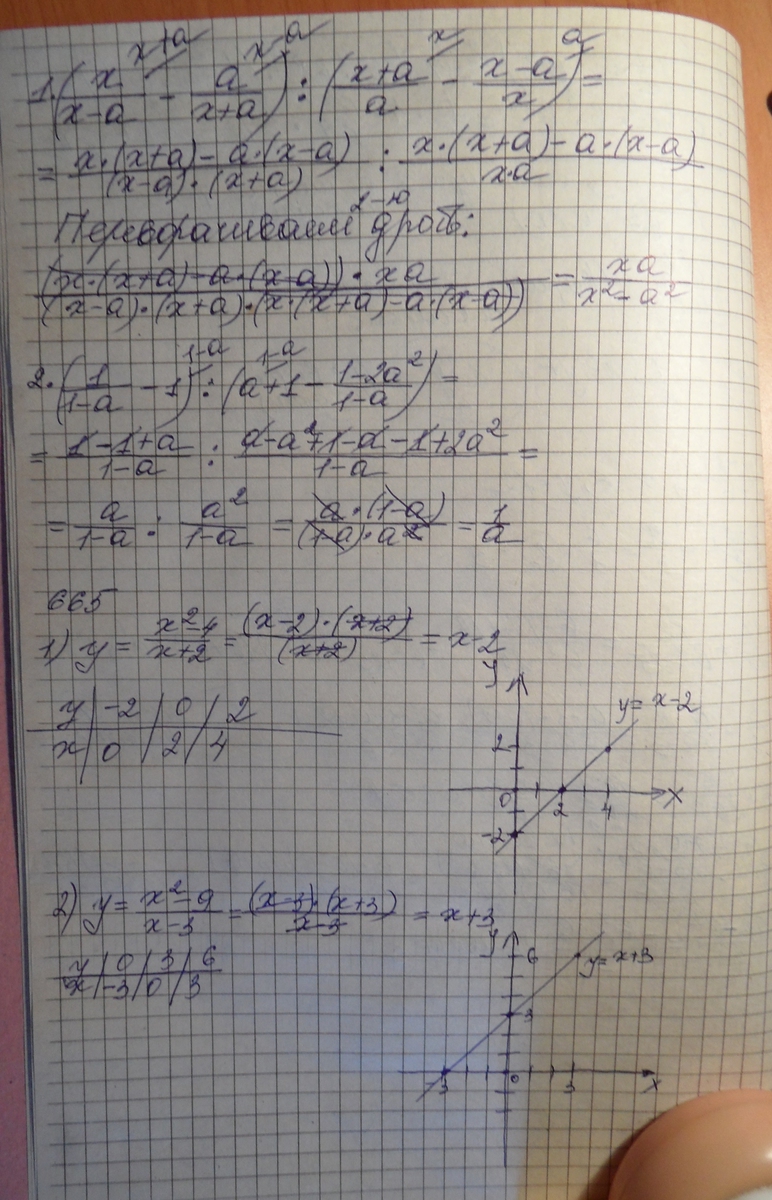 x+a x-a x a
1. (x/(x-a) - a/(x+a)) : ((x+a)/a - (x-a)/x) =
= (x·(x+a)-a·(x-a))/((x-a)·(x+a)) : (x·(x+a)-a·(x-a))/(x·a)
Переворачиваем 2-ю дробь:
((x·(x+a)-a·(x-a))·xa)/((x-a)·(x+a)·(x·(x+a)-a·(x-a))) = xa/(x²-a²)
1-a 1-a
2. (1/(1-a) - 1) : (a+1 - (1-2a²)/(1-a)) =
= (1-1+a)/(1-a) : (a-a²+1-a-1+2a²)/(1-a) =
= a/(1-a) : a²/(1-a) = (a·(1-a))/((1-a)·a²) = 1/a
665
1) y = (x²-4)/(x+2) = ((x-2)·(x+2))/(x+2) = x-2
y | -2 | 0 | 2
x | 0 | 2 | 4
y
y=x-2
2
0 2 4 x
-2
2) y = (x²-9)/(x-3) = ((x-3)·(x+3))/(x-3) = x+3
y | 0 | 3 | 6
x | -3 | 0 | 3
y
6
y=x+3
3
-3 0 3 x